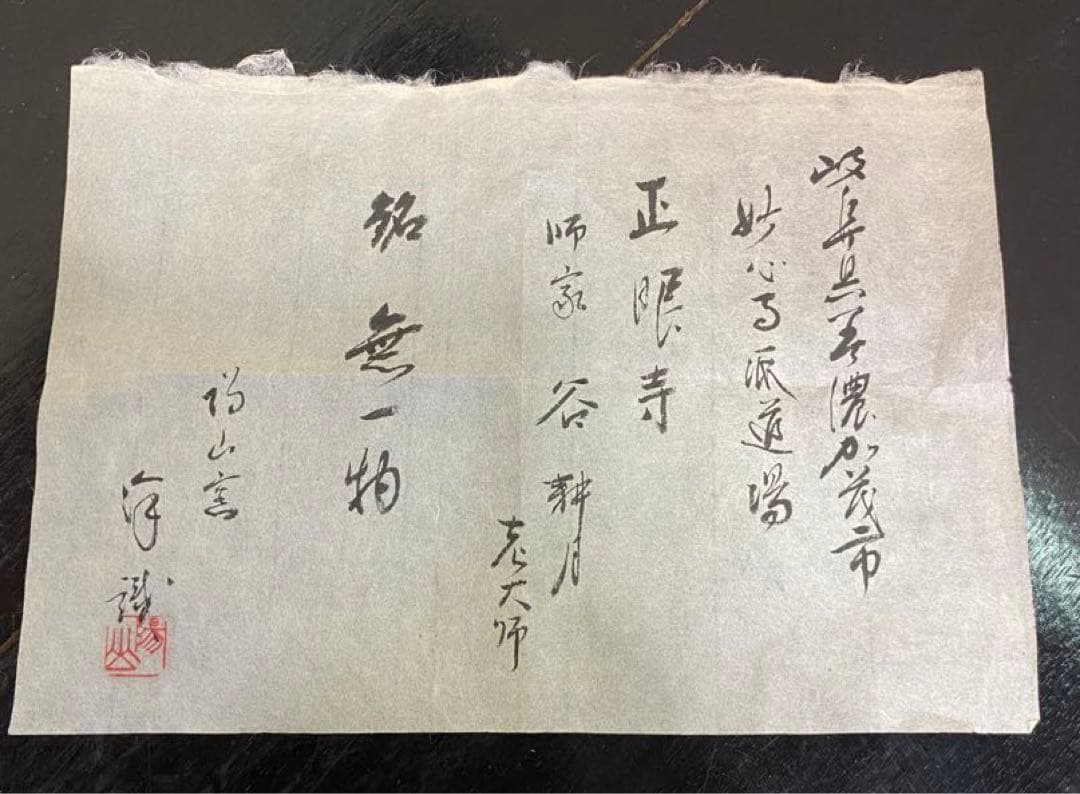 岐阜県美濃加茂市
妙心寺派道場
正眼寺
師家 谷耕月
老大師
銘 無一物
陽山窯
識
陽山